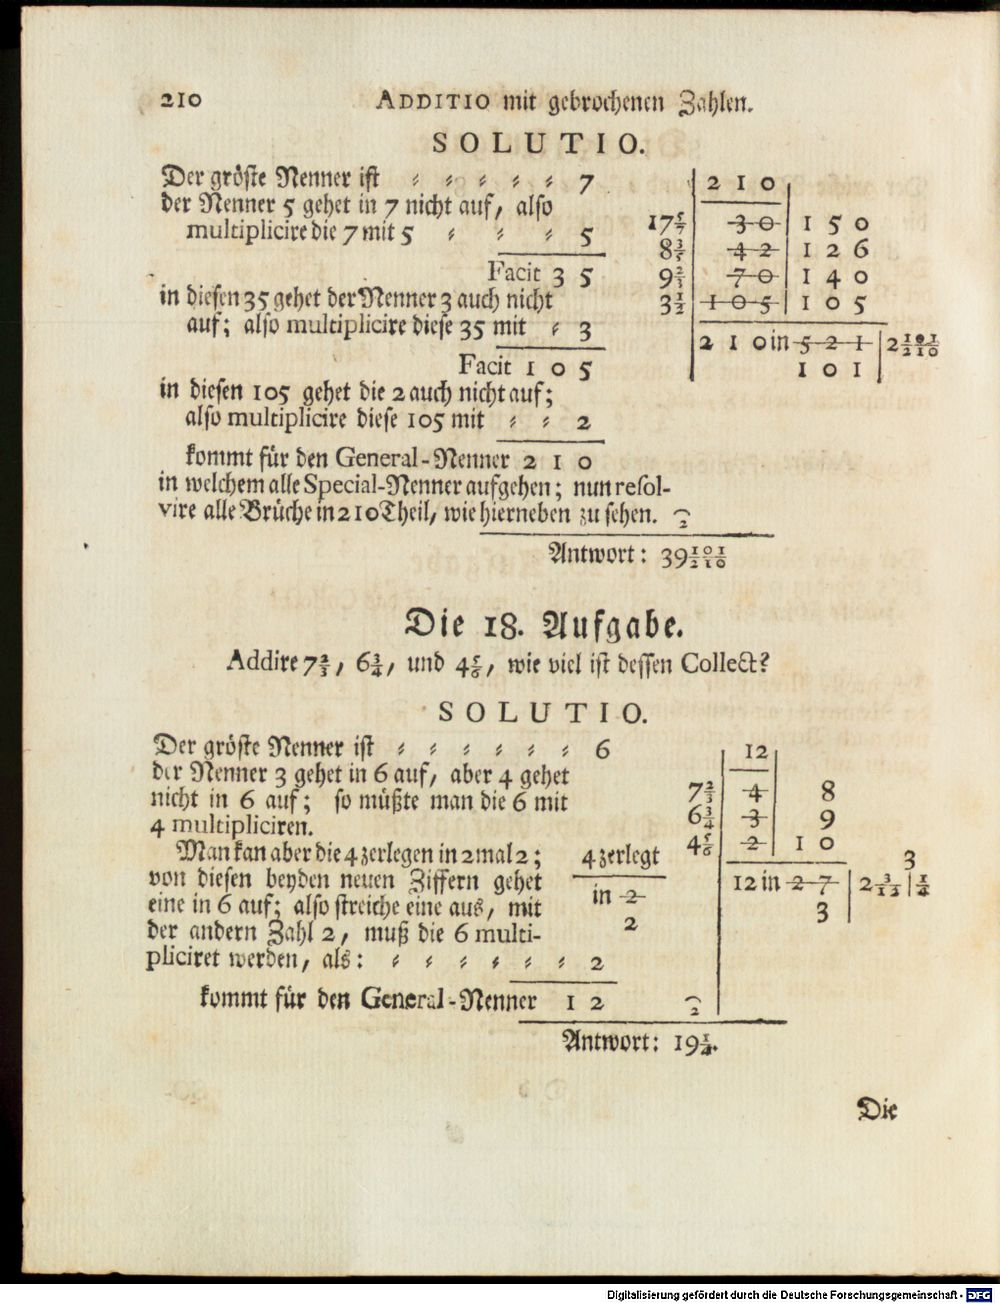 210 ADDITIO mit gebrochenen Zahlen.
SOLUTIO.
Der gröste Nenner ist ⸗ ⸗ ⸗ ⸗ ⸗ 7
der Nenner 5 gehet in 7 nicht auf, also
multiplicire die 7 mit 5 ⸗ ⸗ ⸗ 5
Facit 3 5
in diesen 35 gehet der Nenner 3 auch nicht
auf; also multiplicire diese 35 mit ⸗ 3
Facit 1 0 5
in diesen 105 gehet die 2 auch nicht auf;
also multiplicire diese 105 mit ⸗ ⸗ 2
kommt für den General-Nenner 2 1 0
in welchem alle Special-Nenner aufgehen; nun resol-
vire alle Brüche in 210 Theil, wie hierneben zu sehen. 2
2 1 0
17 5/7 3 0 1 5 0
8 3/5 4 2 1 2 6
9 2/3 7 0 1 4 0
3 1/2 1 0 5 1 0 5
2 1 0 in 5 2 1 2 101/210
1 0 1
Antwort: 39 101/210
Die 18. Aufgabe.
Addire 7 2/3, 6 3/4, und 4 5/6, wie viel ist dessen Collect?
SOLUTIO.
Der gröste Nenner ist ⸗ ⸗ ⸗ ⸗ ⸗ ⸗ 6
der Nenner 3 gehet in 6 auf, aber 4 gehet
nicht in 6 auf; so müßte man die 6 mit
4 multipliciren.
Man kan aber die 4 zerlegen in 2 mal 2;
von diesen beyden neuen Ziffern gehet
eine in 6 auf; also streiche eine aus, mit
der andern Zahl 2, muß die 6 multi-
pliciret werden, als: ⸗ ⸗ ⸗ ⸗ ⸗ ⸗ 2
kommt für den General-Nenner 1 2 2
4 zerlegt
in 2
2
12
7 2/3 4 8
6 3/4 3 9
4 5/6 2 1 0
3
12 in 2 7 2 3/12 1/4
3
Antwort: 19 1/4.
Die
Digitalisierung gefördert durch die Deutsche Forschungsgemeinschaft - DFG